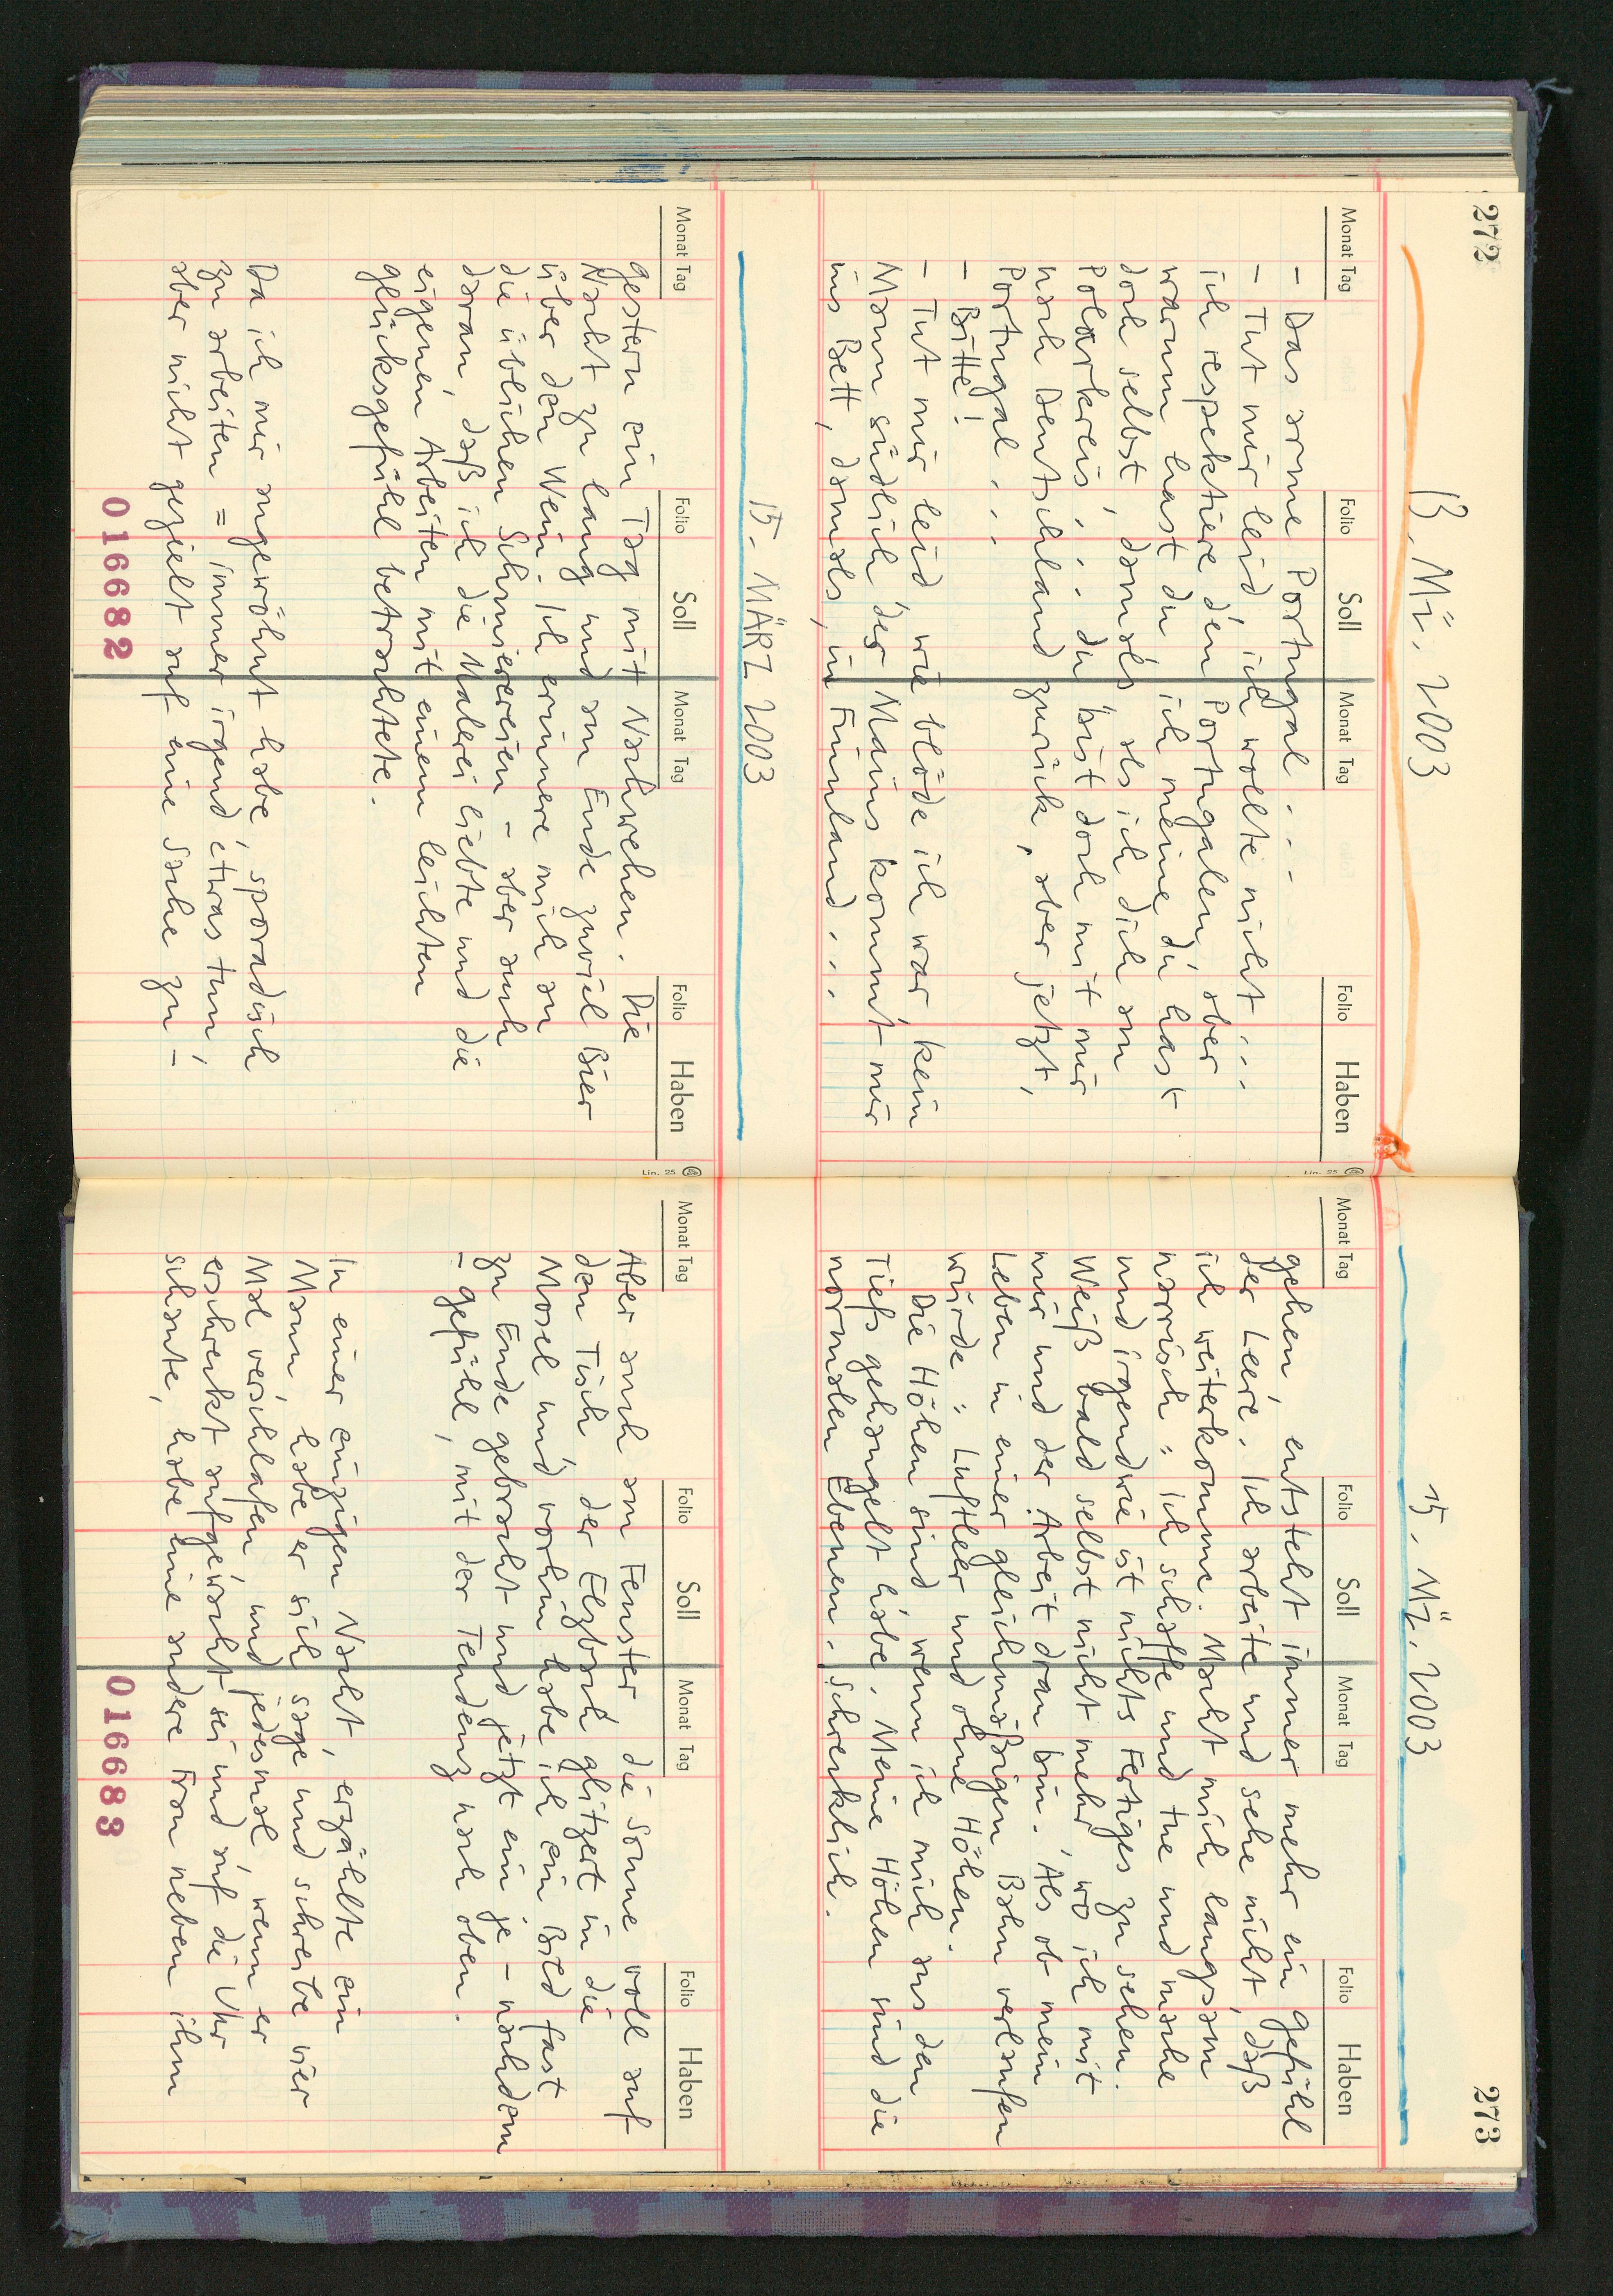 272
13. Mä. 2003
Monat Tag Folio Soll Monat Tag Folio Haben
– Das arme Portugal . . .
– Tut mir leid, ich wollte nicht . . .
ich respektiere den Portugalen, aber
warum hast du, ich meine du hast
doch selbst, damals als ich dich am
Polarkreis, . . . du bist doch mit mir
nach Deutschland zurück, aber jetzt,
Portugal . . .
– Bitte!
– Tut mir leid wie blöde ich war kein
Mann südlich des Mains kommt mir
ins Bett, damals, in Finnland . . .
Lin. 25
15. MÄRZ 2003
Monat Tag Folio Soll Monat Tag Folio Haben
gestern ein Tag mit Nachwehen. Die
Nacht zu lang und am Ende zuviel Bier
über den Wein. Ich erinnere mich an
die üblichen Schmierereien – aber auch
daran, daß ich die Malerei liebte und die
eigenen Arbeiten mit einem leichten
glücksgefühl betrachtete.
Da ich mir angewöhnt habe, sporadisch
zu arbeiten = immer irgend etwas tun,
aber nicht gezielt auf eine Sache zu –
Lin. 25
016682
273
15. Mä. 2003
Monat Tag Folio Soll Monat Tag Folio Haben
gehen, entsteht immer mehr ein gefühl
der Leere. Ich arbeite und sehe nicht, daß
ich weiterkomme. Macht mich langsam
närrisch: ich schaffe und tue und mache
und irgendwie ist nichts Fertiges zu sehen.
Weiß bald selbst nicht mehr, wo ich mit
mir und der Arbeit dran bin. Als ob mein
Leben in einer gleichmäßigen Bahn verlaufen
würde: Luftleer und ohne Höhen.
Die Höhen sind wenn ich mich aus den
Tiefs gehangelt habe. Meine Höhen sind die
normalen Ebenen. Schrecklich.
Monat Tag Folio Soll Monat Tag Folio Haben
Aber auch am Fenster die Sonne voll auf
den Tisch der Elzbach glitzert in die
Mosel und vorhin habe ich ein Bild fast
zu Ende gebracht und jetzt ein je – nachdem
– gefühl, mit der Tendenz nach oben.
In einer einzigen Nacht, erzählte ein
Mann, habe er sich sage und schreibe vier
Mal verschlafen, und jedesmal, wenn er
erschreckt aufgewacht sei und auf die Uhr
schaute, habe eine andere Frau neben ihm
016683